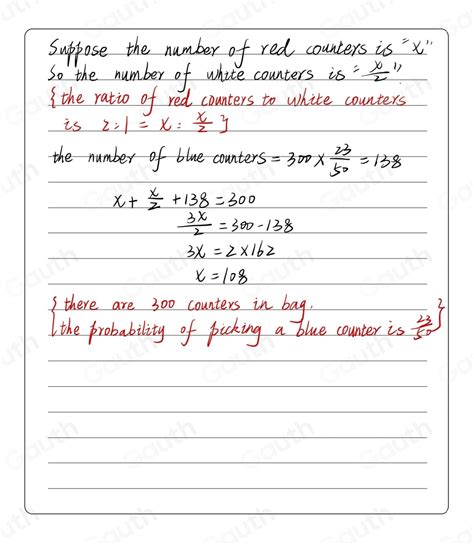 Suppose the number of red counters is "x"
So the number of white counters is "x/2"
{the ratio of red counters to white counters
is 2:1 = x : x/2}
the number of blue counters = 300 × 23/50 = 138
x + x/2 + 138 = 300
3x/2 = 300 - 138
3x = 2 × 162
x = 108
{there are 300 counters in bag.
the probability of picking a blue counter is 23/50}
Gauth